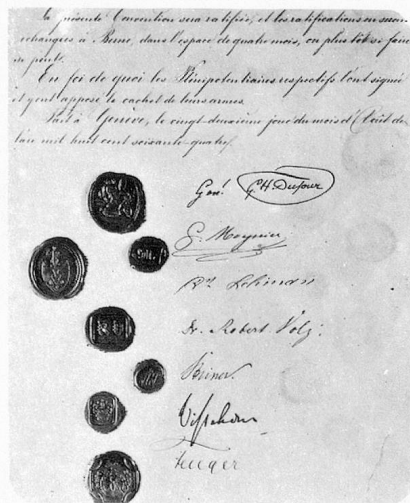 La présente Convention sera ratifiée, et les ratifications en seront
échangées à Berne, dans l'espace de quatre mois, ou plus tôt si faire
se peut.
En foi de quoi les Plénipotentiaires respectifs l'ont signée
et y ont apposé le cachet de leurs armes.
Fait à Genève, le vingt-deuxième jour du mois d'Août de
l'an mil huit cent soixante-quatre.
Gén! G.H. Dufour
G. Moynier
Dr. Lehmann
Dr. Robert Volz.
Steiner.
Visschers
Fenger